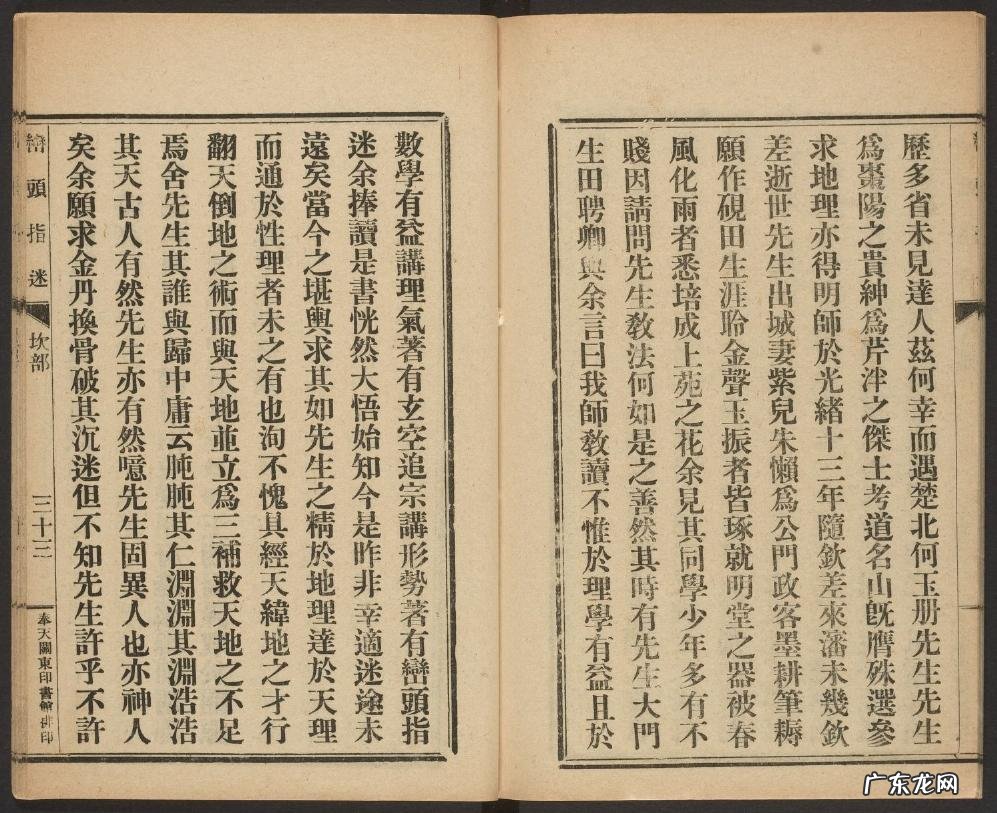 歷多省未見達人茲何幸而遇楚北何玉册先生先生
為棗陽之貴紳為芹泮之傑士考道名山旣膺殊選參
求地理亦得明師於光緒十三年隨欽差來瀋未幾欽
差逝世先生出城妻紫兒朱懶為公門政客墨耕筆耨
願作硯田生涯聆金聲玉振者皆琢就明堂之器被春
風化雨者悉培成上苑之花余見其同學少年多有不
賤因請問先生敎法何如是之善然其時有先生大門
生田聘卿與余言曰我師敎讀不惟於理學有益且於
數學有益講理氣著有玄空追宗講形勢著有巒頭指
迷余捧讀是書恍然大悟始知今是昨非幸適迷途未
遠矣當今之堪輿求其如先生之精於地理達於天理
而通於性理者未之有也洵不愧具經天緯地之才行
翻天倒地之術而與天地並立為三補救天地之不足
焉舍先生其誰與歸中庸云肫肫其仁淵淵其淵浩浩
其天古人有然先生亦有然噫先生固異人也亦神人
矣余願求金丹換骨破其沉迷但不知先生許乎不許
巒頭指迷 坎部 三十三 奉天關東印書館排印
广东龙网